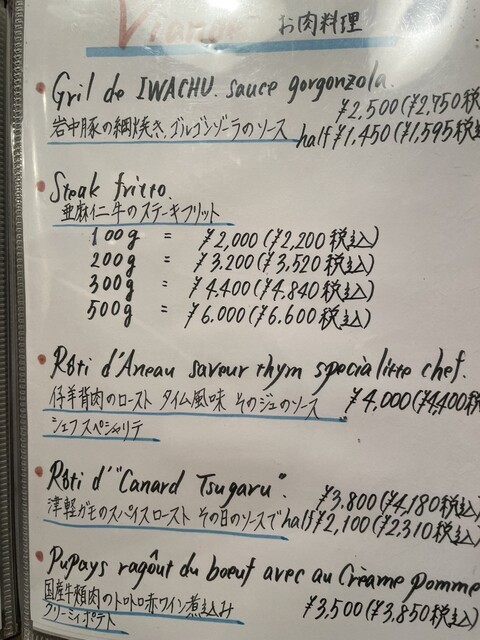 Viande お肉料理
Gril de IWACHU. sauce gorgonzola.
¥2,500(¥2,750税
岩中豚の網焼き、ゴルゴンゾーラのソース half ¥1,450(¥1,595税
Steak fritto.
亜麻仁牛のステーキフリット
100g = ¥2,000(¥2,200税込)
200g = ¥3,200(¥3,520税込)
300g = ¥4,400(¥4,840税込)
500g = ¥6,000(¥6,600税込)
Rôti d'Aneau saveur thym specialitte chef.
仔羊背肉のロースト タイム風味 そのジュのソース ¥4,000(¥4,400税
シェフ スペシャリテ
Rôti d'"Canard Tsugaru".
¥3,800(¥4,180税込)
津軽ガモのスパイスロースト その日のソースで half ¥2,100(¥2,310税込)
Pupays ragoût du boeuf avec au Crèame pomme
国産牛頬肉のトロトロ赤ワイン煮込み ¥3,500(¥3,850税込)
クリーミィポテト